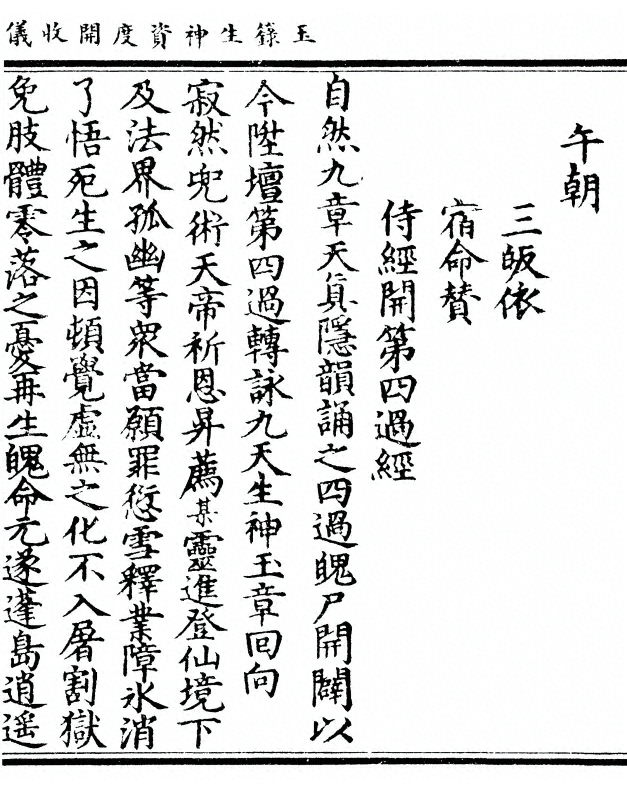 玉籙生神資度開收儀
午朝
三皈依
宿命贊
侍經開第四過經
自然九章天真隱韻誦之四過魄尸開闢以
今陞壇第四過轉詠九天生神玉章回向
寂然兜術天帝祈恩昇薦某靈進登仙境下
及法界孤幽等眾當願罪愆雪釋業障氷消
了悟死生之因頓覺虛無之化不入屠割獄
免肢體零落之憂再生魄命元遂蓬島逍遥